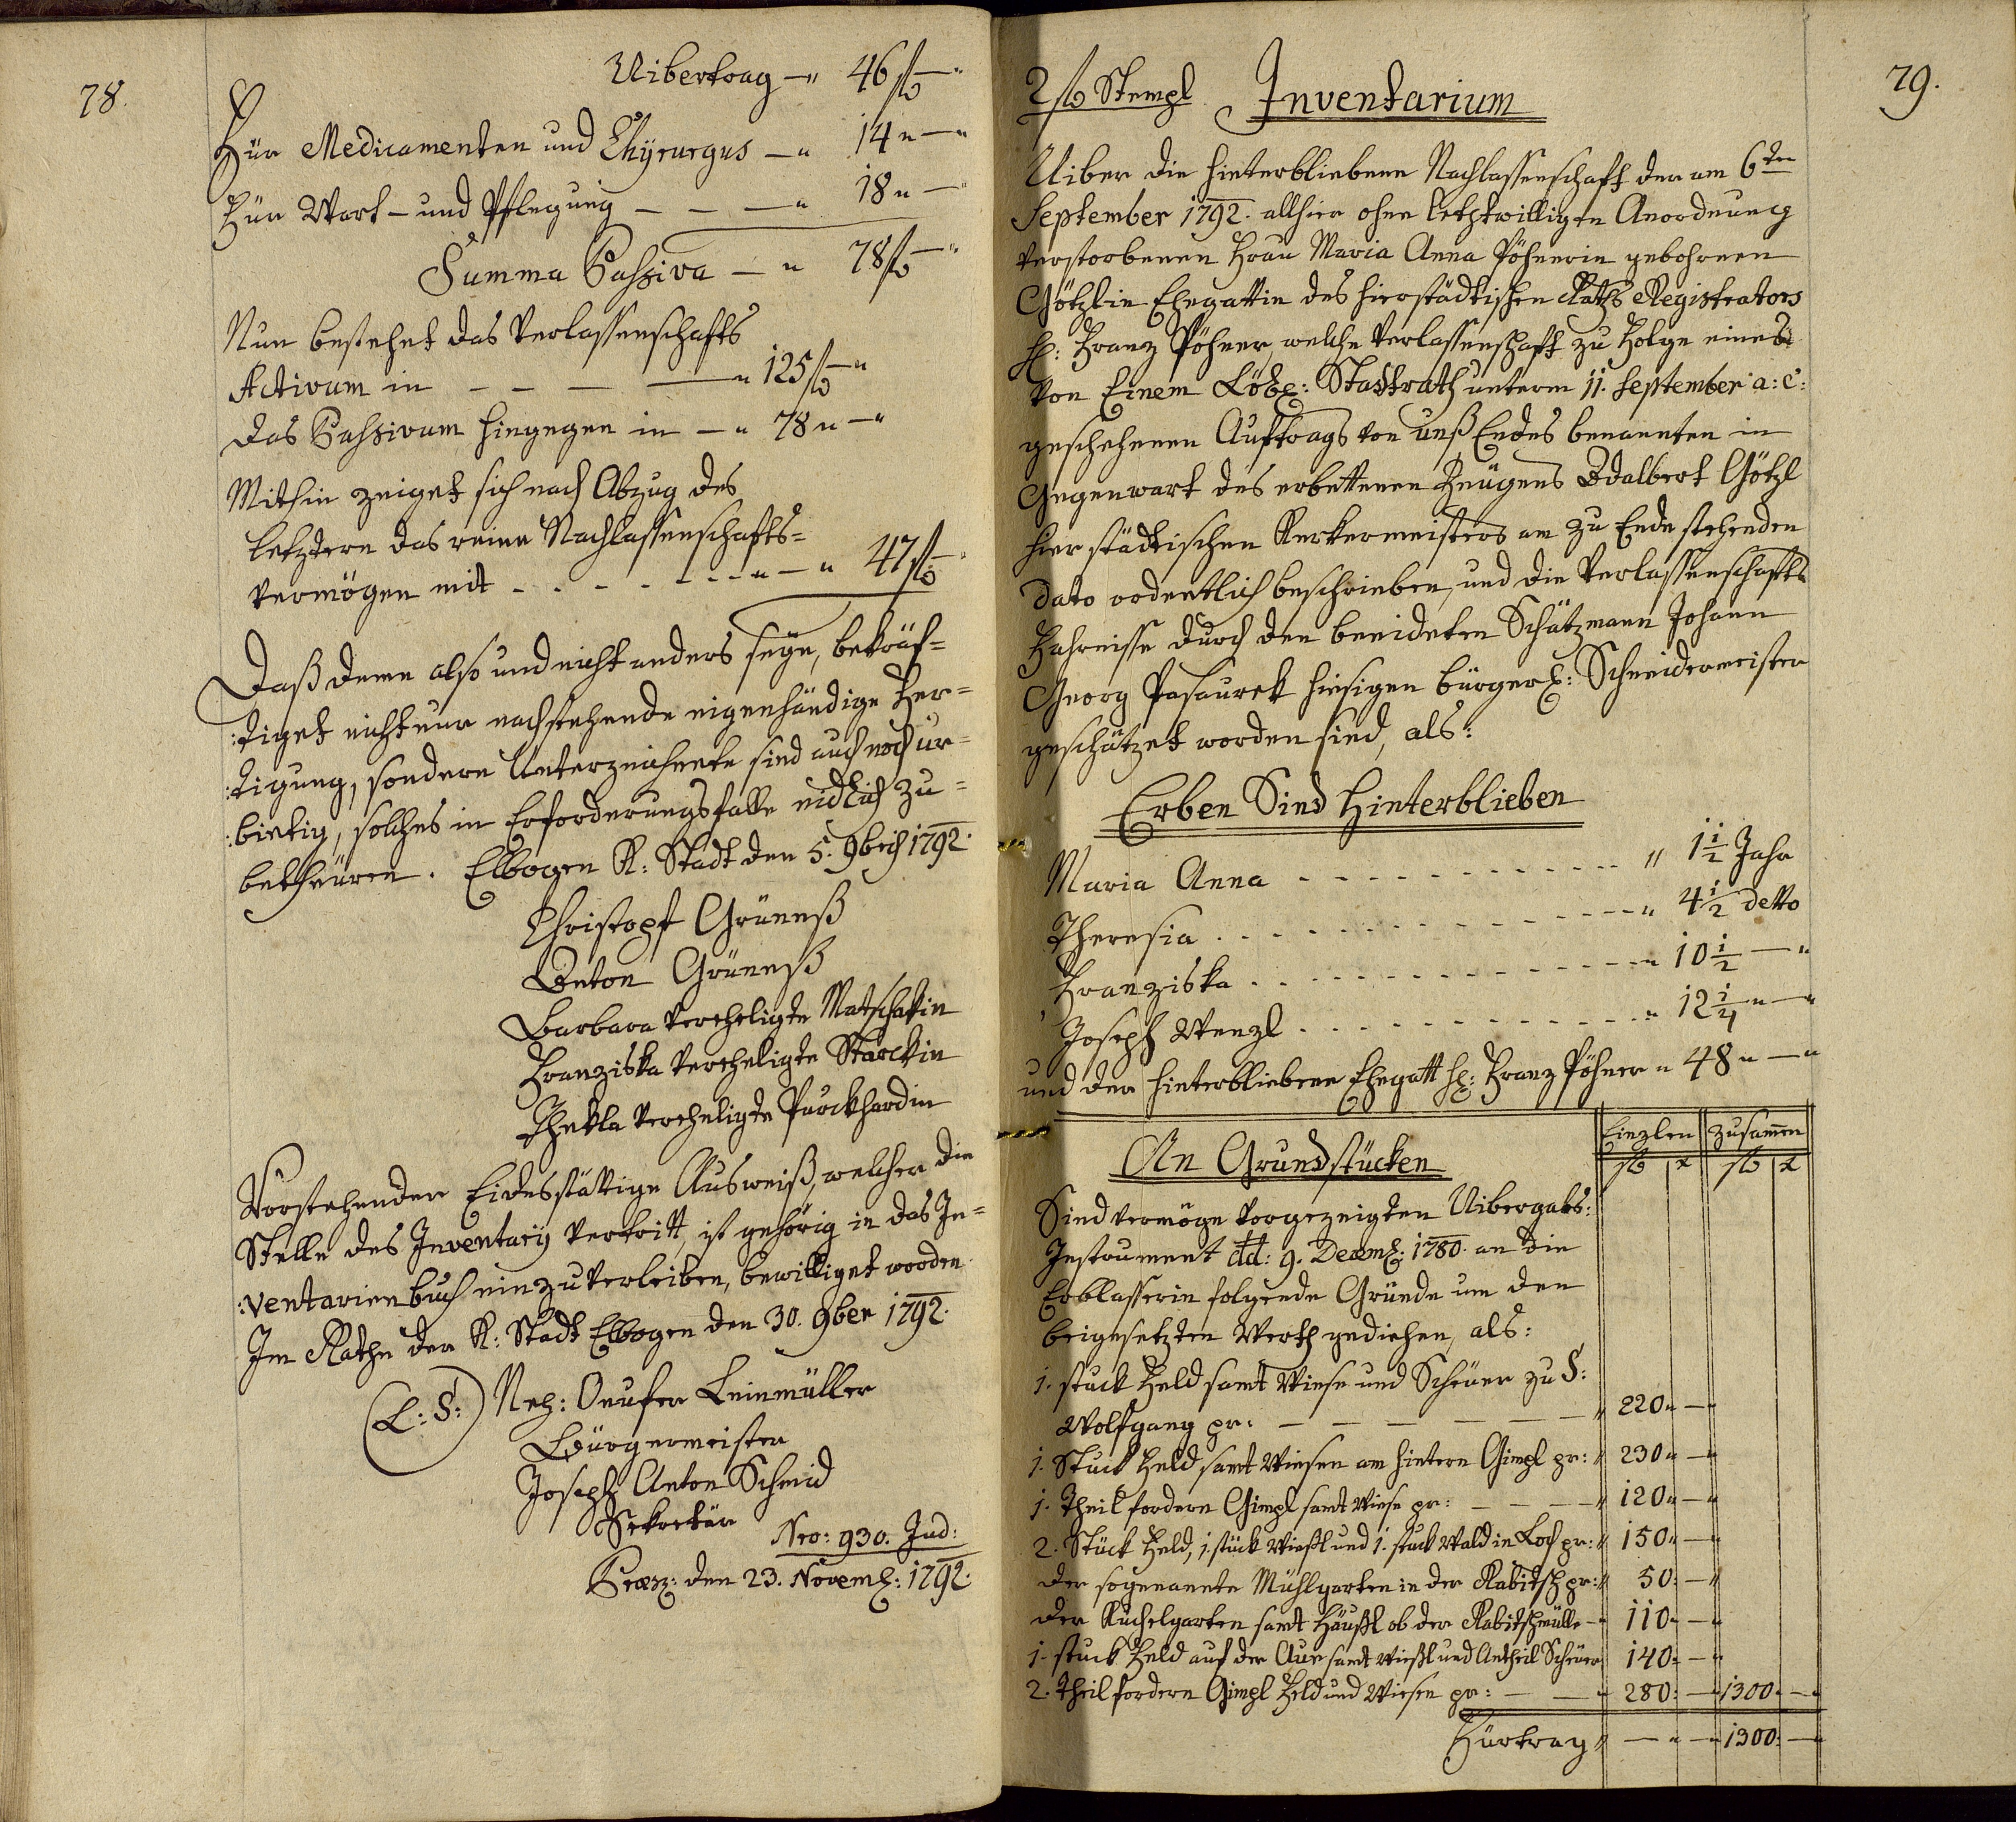 78.
Uibertrag — " 46 fl — "
Für Medicamenten und Chyrurgus — " 14 " — "
Für Wart- und Pflegung — — — " 18 " — "
Summa Passiva — " 78 fl — "
Nun bestehet das Verlassenschafts
Activum in — — — — " 125 fl — "
das Passivum hingegen in — " 78 " — "
Mithin zeiget sich nach Abzug des
letztern das reine Nachlassenschafts=
vermögen mit - - - - - - - " — " 47 fl — "
Daß deme also und nicht anders seÿe, bekräf=
:tiget nicht nur nachstehende eigenhändige Fer=
:tigung, sondern Unterzeichnete sind auch noch ur=
:biettig, solches in Erforderungsfalle eidlich zu=
betheüren. Elbogen K: Stadt den 5. 9bris 1792.
Christoph Grüneß
Anton Grüneß
Barbara verehligte Matschatin
Franziska verehligte Starckin
Thekla verehligte Purckhardin
Vorstehender Eidesstättige Ausweiß, welcher die
Stelle des Inventarÿ vertritt, ist gehörig in das In=
:ventarienbuch einzuverleiben, bewilliget worden.
Im Rathe der K: Stadt Elbogen den 30. 9ber 1792.
(L: S:) Onufer Leinmüller
Bürgermeister
Joseph Anton Schmid
Sekretär
Nro: 930. Jud:
Præs: den 23. Novem: 1792.
79.
2 fl Stempl Inventarium
Uiber die hinterbliebene Nachlassenschaft der am 6ten
September 1792. allhier ohne letztwilligen Anordnung
verstorbenen Frau Maria Anna Pöhnerin gebohrnen
Götzlin Ehegattin des hierstädtischen Raths Registrators
H: Franz Pöhner, welche Verlassenschaft zu Folge eines
von Einem Löbl: Stadtrath unterm 11. September a: c:
geschehenen Auftrags von unß Endes benannten in
Gegenwart des erbettenen Zeügens Adalbert Götzl
hier städtischen Kerkermeisters am zu Ende stehenden
dato ordentlich beschrieben, und die Verlassenschafts
Fahrnisse durch den beeideten Schätzmann Johann
Georg Pasaurek hiesigen bürgerl: Schneidermeister
geschätzet worden sind, als:
Erben Sind Hinterblieben
Maria Anna - - - - - - - - - - - " 1 1/2 Jahr
Theresia - - - - - - - - - - - - " 4 1/2 detto
Franziska - - - - - - - - - - - " 10 1/2 — "
Joseph Wenzl - - - - - - - - - - " 12 1/4 " — "
und der hinterbliebene Ehegatt H: Franz Pöhner " 48 " — "
Einzlen zusamen
An Grundstücken fl x fl x
Sind vermöge vorgezeigten Uibergabs:
Instrument dd: 9. Decem: 1780. an die
Erblasserin folgende Gründe um den
beigesetzten Werth gediehen, als:
1. stuck Feld samt Wiese und Scheuer zu S:
Wolfgang pr: — — — — — — " 220 " — "
1. Stuck Feld samt Wiesen am hintern Gimpl pr: " 230 " — "
1. Theil fordern Gimpl samt Wiese pr: — — — — " 120 " — "
2. Stück Feld, 1. stück Wießl und 1. stuck Wald in Loch pr: " 150 " — "
der sogenannte Mühlgarten in der Rabitsch pr: " 50 : — "
der Kuchelgarten samt Häußl ob der Rabitschmülle — " 110 " — "
1. stuck Feld auf der Aue samt Wießl und Antheil Scheüer 140 : — "
2. Theil fordern Gimpl Feld und Wiesen pr: — — " 280 : — " 1300 : — "
Fürtrag " — " — " 1300 : — "